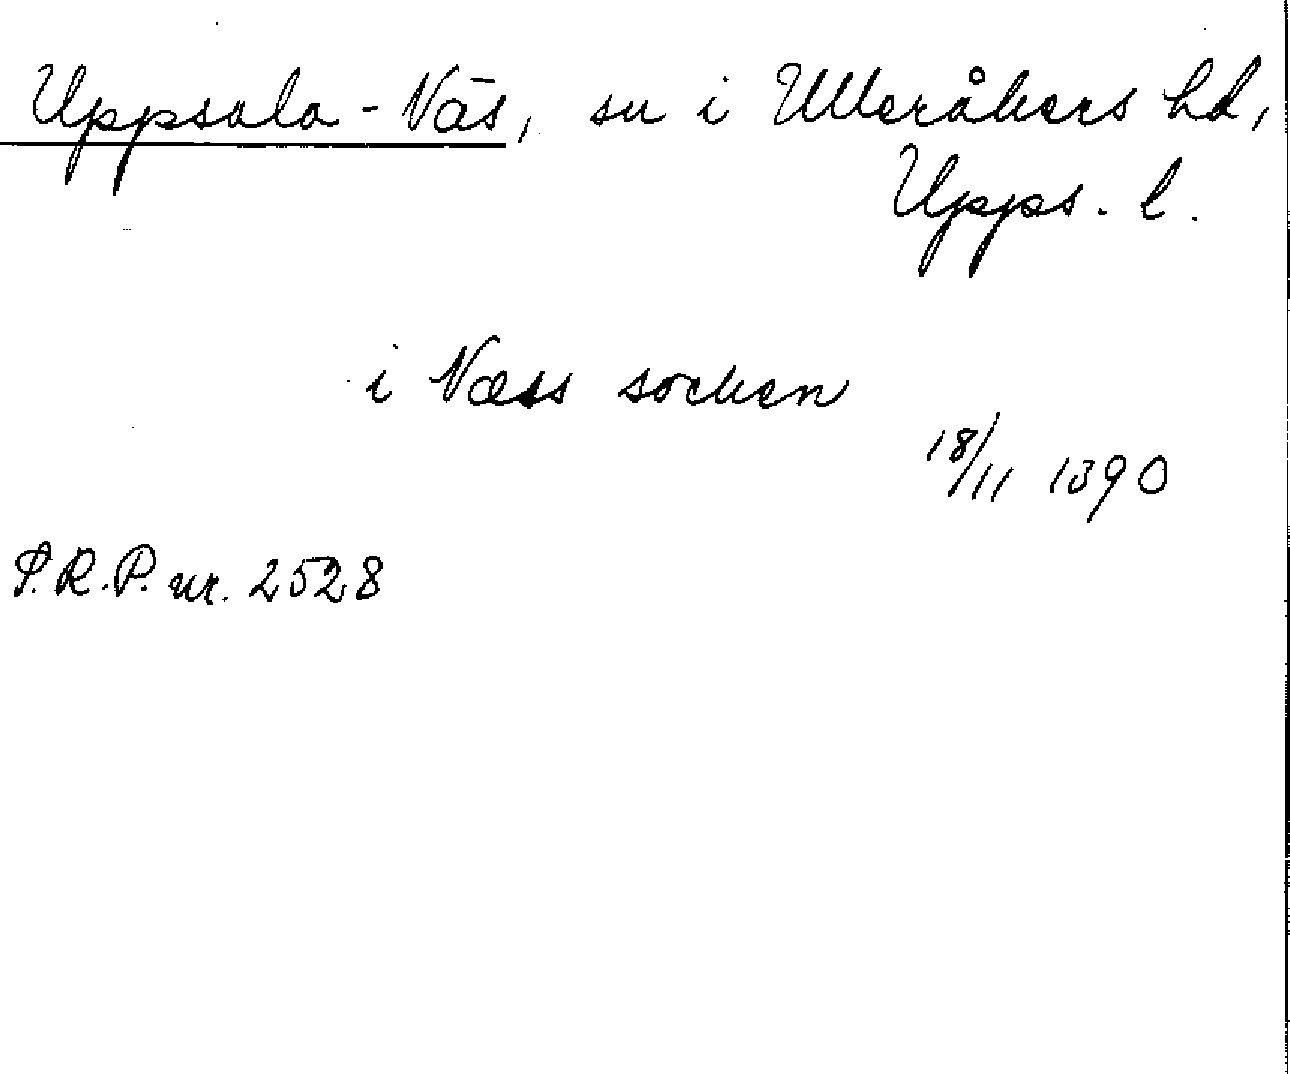 Uppsala-Näs, sn i Ulleråkers hd,
Upps. l.
i Næss socken
18/11 1390
S.R.P. nr. 2528